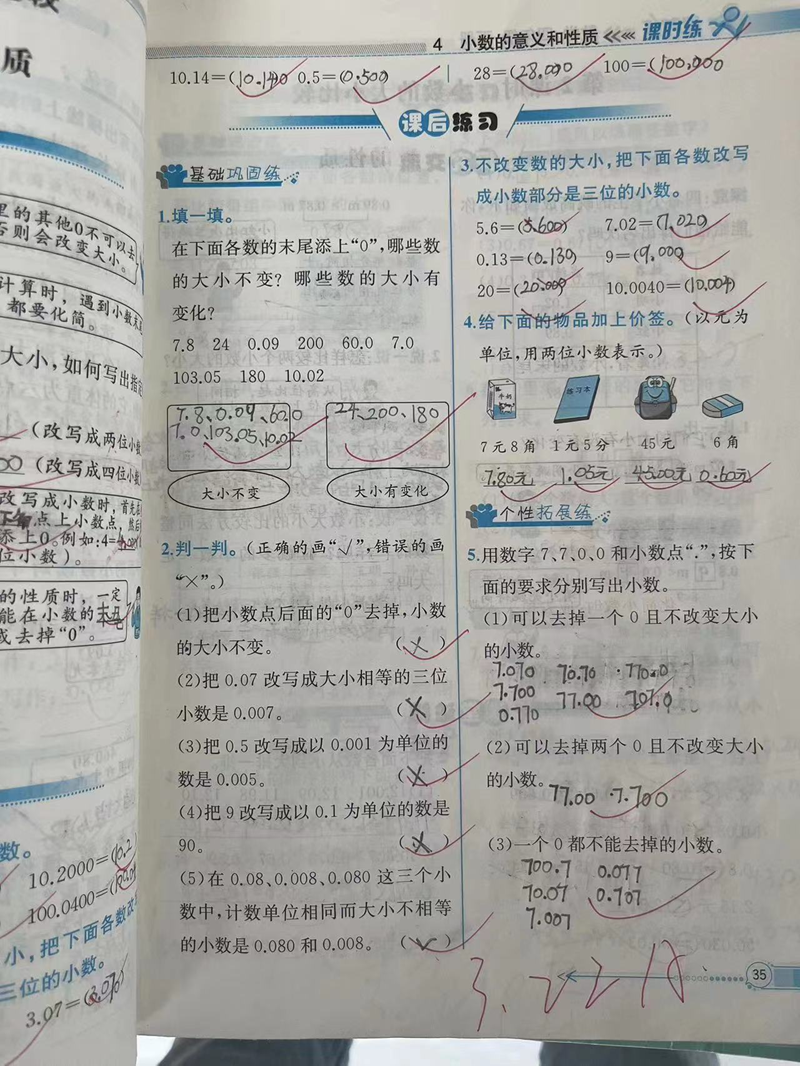 质
里的其他0不可以去
否则会改变大小。
计算时，遇到小数末
都要化简。
大小，如何写出指定
(改写成两位小数
(改写成四位小数)
改写成小数时，首先
点上小数点，然后
添上0。例如:4=
位小数)。
的性质时，一定
能在小数的末尾
或去掉“0”。
数。
10.2000=(10.2
100.0400=(
小，把下面各数改
三位的小数。
3.07=(3.070)
4 小数的意义和性质 课时练
10.14=(10.140 0.5=(0.500) 28=(28.000) 100=(100,000)
课后练习
基础巩固练
1.填一填。
在下面各数的末尾添上“0”，哪些数
的大小不变？哪些数的大小有
变化？
7.8 24 0.09 200 60.0 7.0
103.05 180 10.02
7.8、0.09、60.0
7.0、103.05、10.02
24、200、180
大小不变 大小有变化
2.判一判。(正确的画“√”，错误的画
“×”。)
(1)把小数点后面的“0”去掉，小数
的大小不变。 (×)
(2)把 0.07 改写成大小相等的三位
小数是 0.007。 (×)
(3)把 0.5 改写成以 0.001 为单位的
数是 0.005。 (×)
(4)把 9 改写成以 0.1 为单位的数是
90。 (×)
(5)在 0.08、0.008、0.080 这三个小
数中，计数单位相同而大小不相等
的小数是 0.080 和 0.008。 (√)
3.不改变数的大小，把下面各数改写
成小数部分是三位的小数。
5.6=(5.600) 7.02=(7.020)
0.13=(0.130) 9=(9.000)
20=(20.000) 10.0040=(10.004)
4.给下面的物品加上价签。(以元为
单位，用两位小数表示。)
练习本
7元8角 1元5分 45元 6角
7.80元 1.05元 45.00元 0.60元
个性拓展练
5.用数字 7、7、0、0 和小数点“.”，按下
面的要求分别写出小数。
(1)可以去掉一个 0 且不改变大小
的小数。
7.070 70.70 770.0
7.700 77.00 707.0
0.770
(2)可以去掉两个 0 且不改变大小
的小数。
77.00 7.700
(3)一个 0 都不能去掉的小数。
700.7 0.077
70.07 0.707
7.007
3.22
35